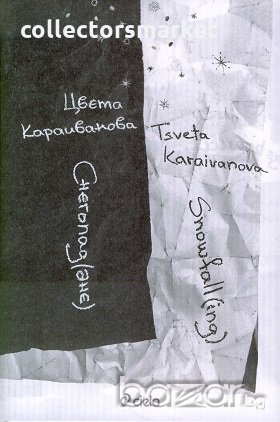 collectorsmarket
Цвета
Караиванова
Tsveta
Karaivanova
Снегопад(ане)
Snowfall(ing)
ciela
bazar.bg